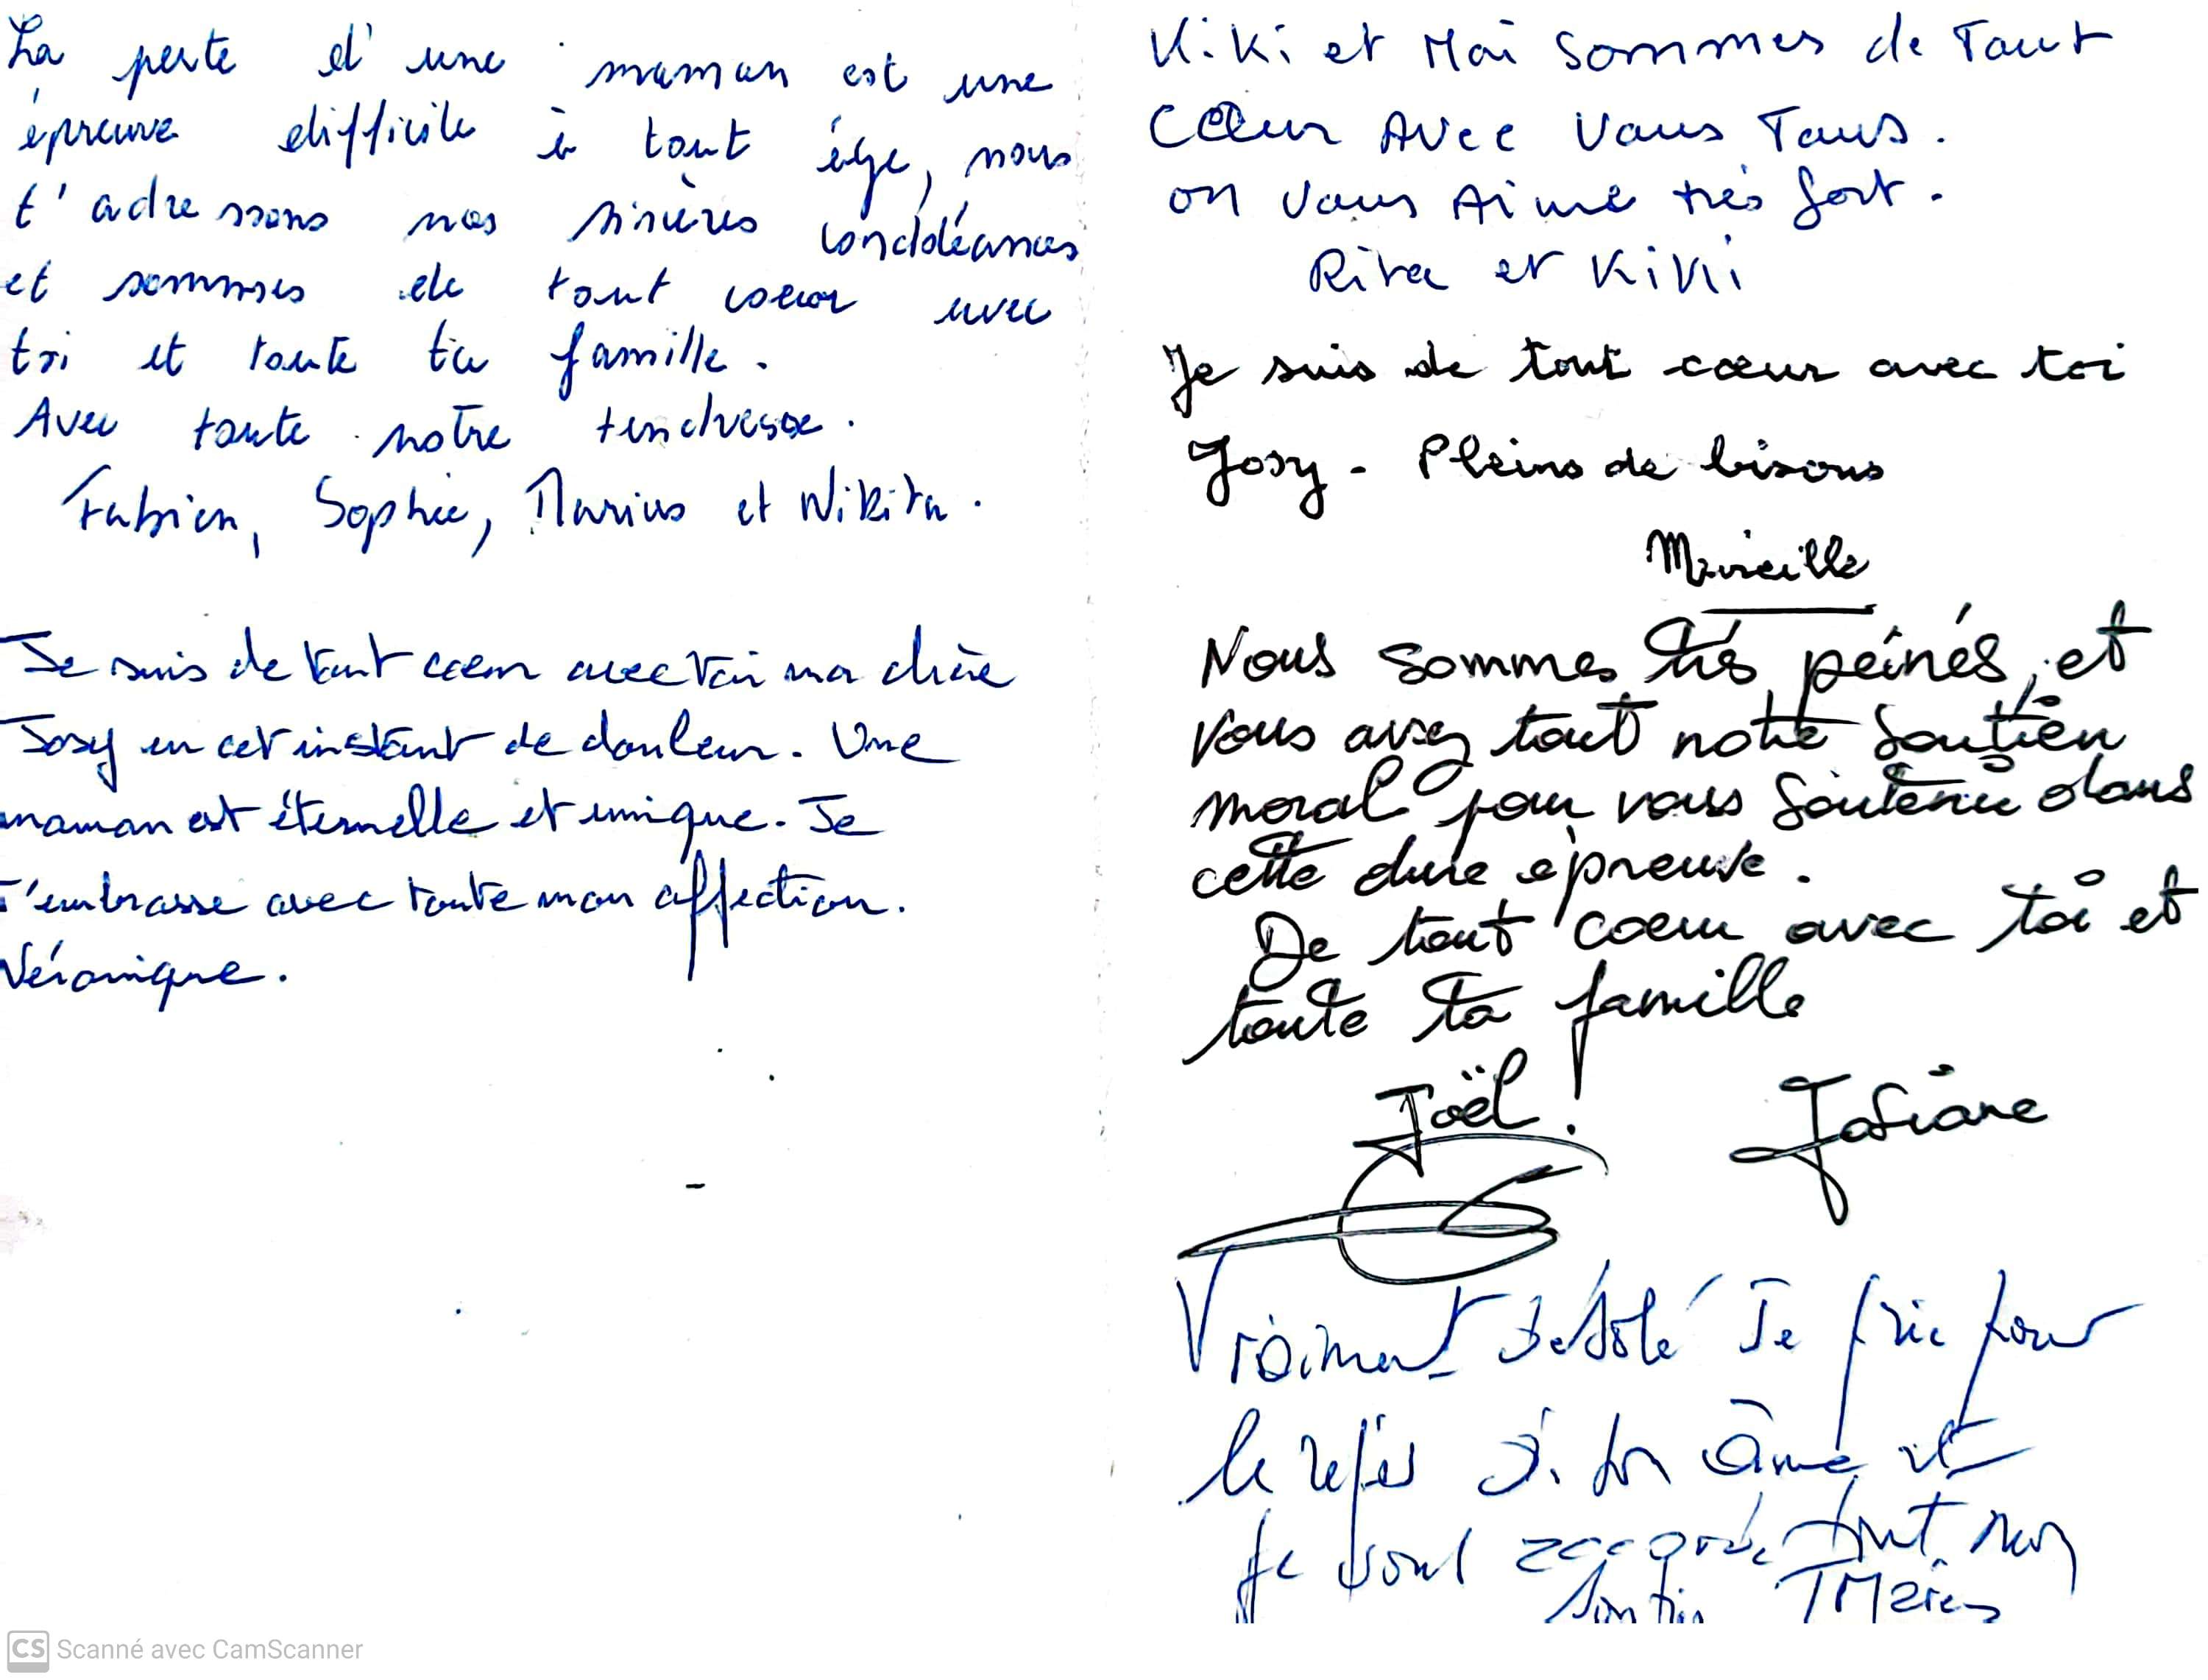 La perte d'une maman est une
épreuve difficile à tout âge, nous
t'adressons nos sincères condoléances
et sommes de tout coeur avec
toi et toute ta famille.
Avec toute notre tendresse.
Fabien, Sophie, Marius et Nikita.
Je suis de tout coeur avec toi ma chère
Josy en cet instant de douleur. Une
maman est éternelle et unique. Je
t'embrasse avec toute mon affection.
Véronique.
Kiki et Moi sommes de Tout
Cœur Avec Vous Tous.
on vous Aime très fort.
Rita et Kiki
Je suis de tout cœur avec toi
Josy - Pleins de bisous
Mireille
Nous sommes très peinés, et
vous avez tout notre soutien
moral pour vous soutenir dans
cette dure épreuve.
De tout coeur avec toi et
toute ta famille
Joël. Josiane
Vraiment désolé Je prie pour
le repos de son âme et
je vous accorde tout mon
soutien
CS Scanné avec CamScanner